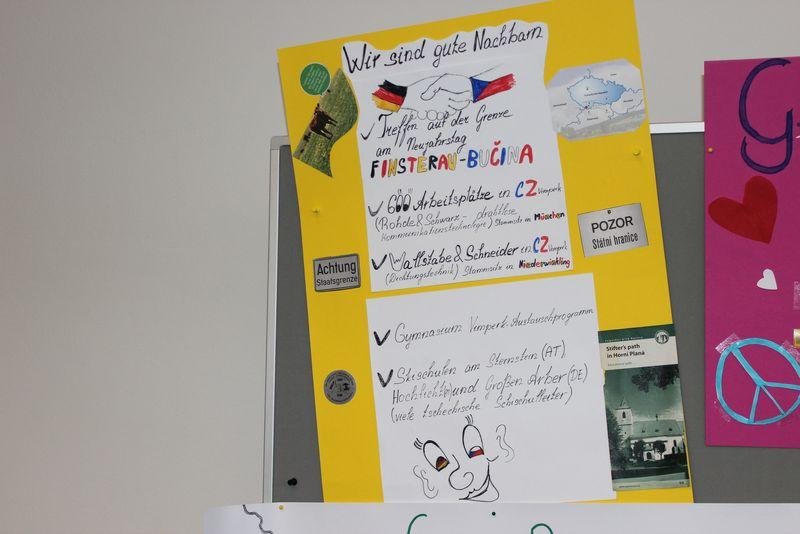 Wir sind gute Nachbarn
✓ Treffen auf der Grenze
am Neujahrstag
FINSTERAU-BUČINA
✓ 600 Arbeitsplätze in CZ Vimperk
(Rohde & Schwarz - drahtlose
Kommunikationstechnologie) Stammsitz in München
✓ Wallstabe & Schneider in CZ Vimperk
(Dichtungstechnik) Stammsitz in Niederwinkling
Achtung
Staatsgrenze
POZOR
Státní hranice
✓ Gymnasium Vimperk-Austauschprogramm
✓ Skischulen am Sternstein (AT),
Hochficht und Großen Arber (DE)
(viele tschechische Schischulleiter)
Stifter's path
in Horní Planá
G